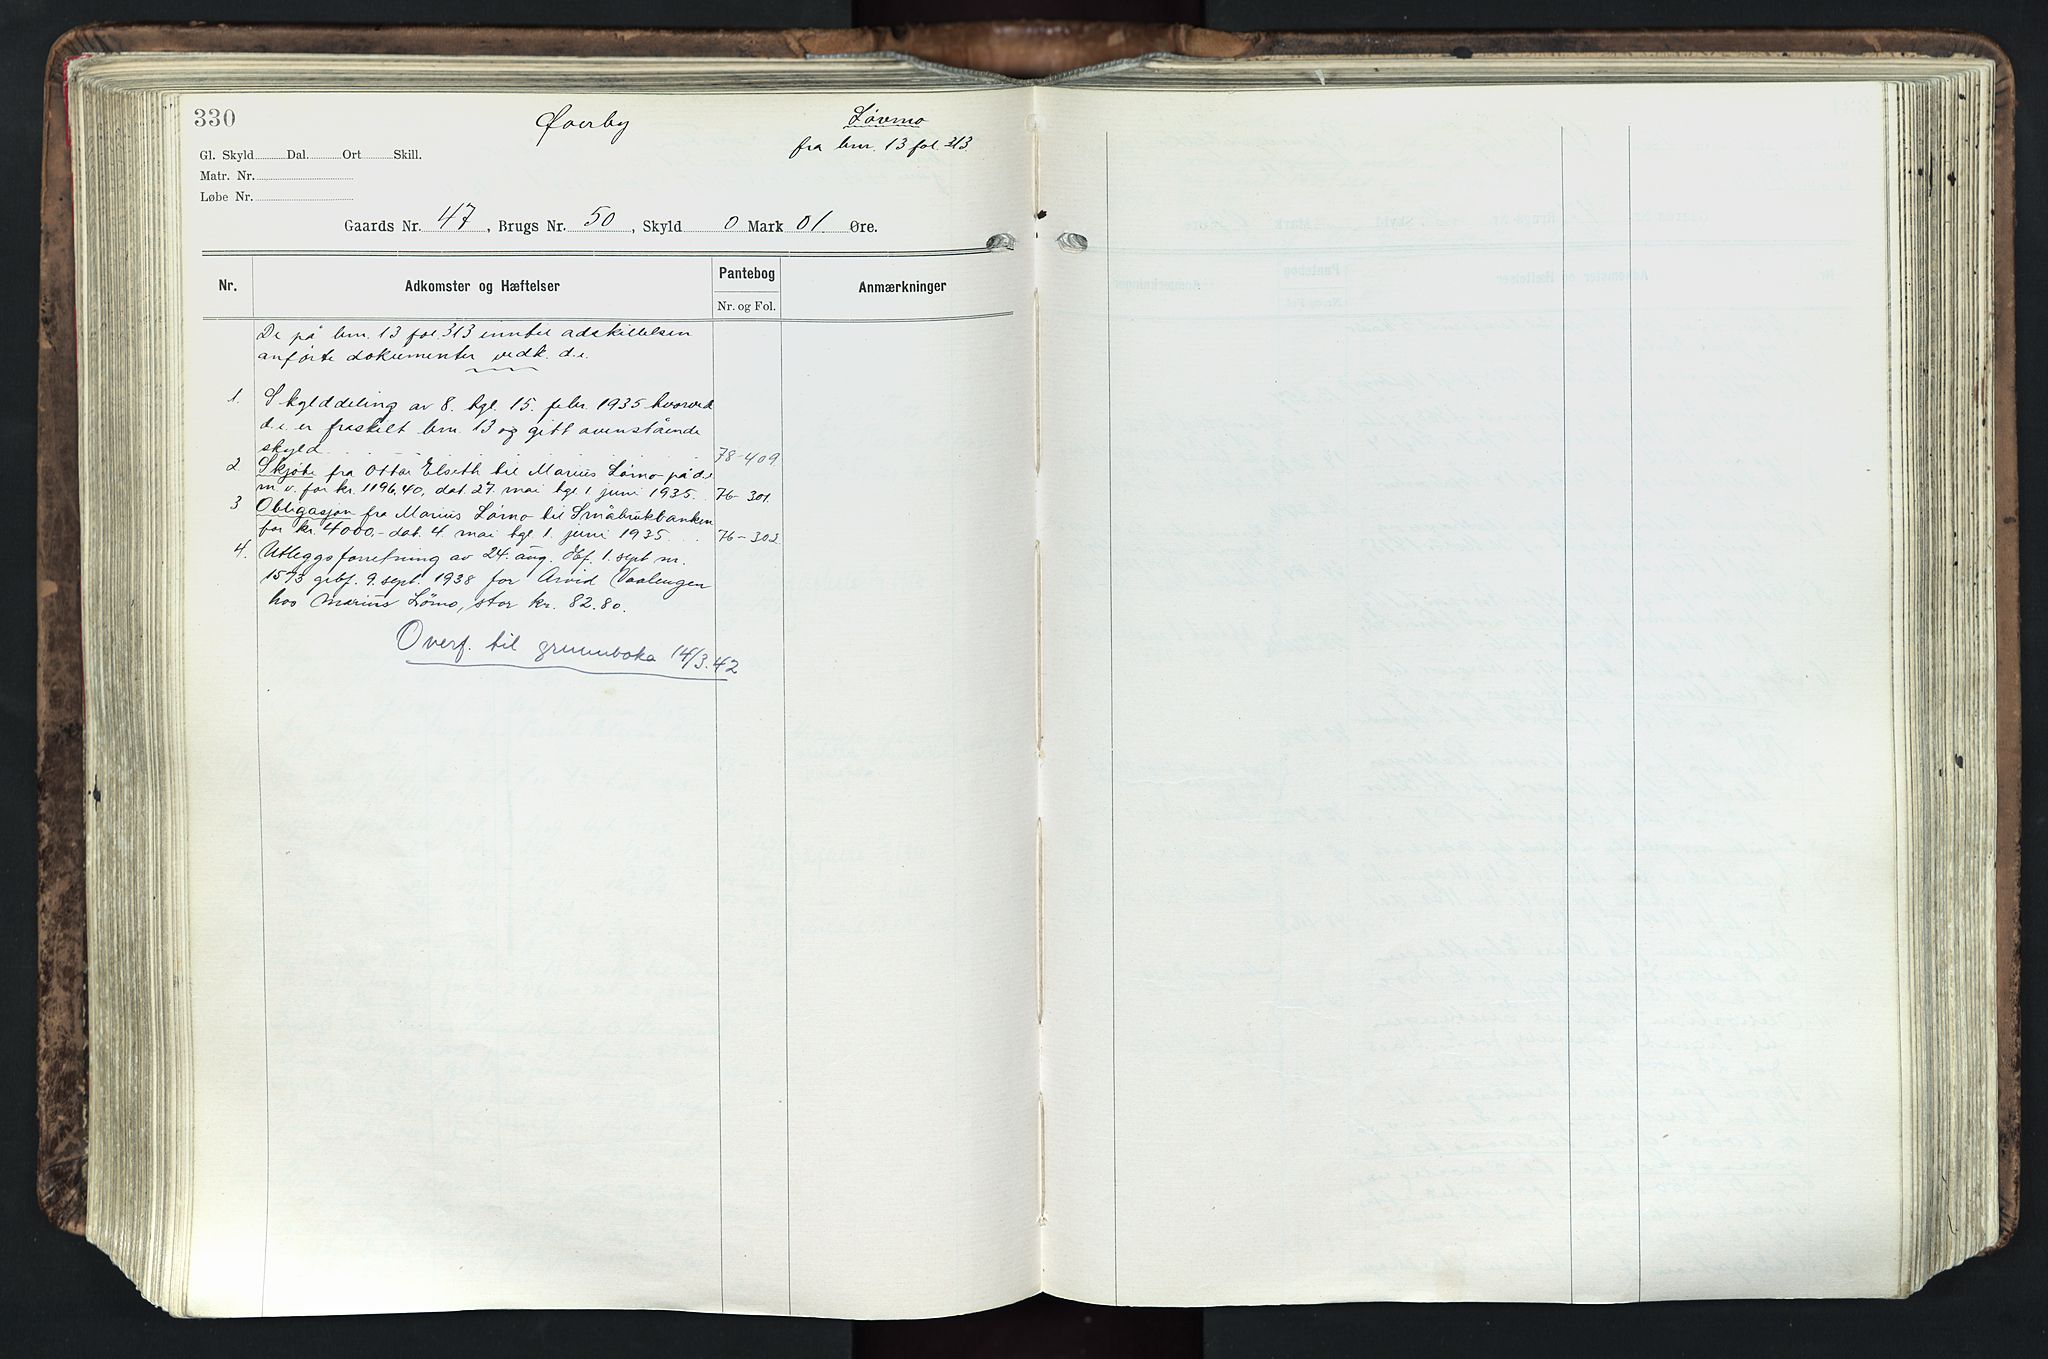 330
Øverby
Løvmo
fra bnr. 13 fol. 313
Gl. Skyld Dal. Ort Skill.
Matr. Nr.
Løbe Nr.
Gaards Nr. 47, Brugs Nr. 50, Skyld 0 Mark 01 Øre.
Nr. Adkomster og Hæftelser Pantebog Anmærkninger
Nr. og Fol.
De på bnr. 13 fol. 313 inntil adskillelsen
anførte dokumenter vedk. d.e.
1. Skylddeling av 8. tgl. 15. febr. 1935 hvorved
d.e. er fraskilt bnr. 13 og gitt ovenstående
skyld 78-409
2. Skjøte fra Ottar Elseth til Marius Lømo på d.e.
m.v. for kr. 1196,40, dat. 27. mai tgl. 1 juni 1935. 76-301.
3 Obligasjon fra Marius Lømo til Småbrukbanken
for kr. 4000,- dat. 4. mai tgl. 1. juni 1935. 76-303
4. Utleggsforretning av 24. aug. Ef. 1. sept. nr.
1573 gebf. 9. sept. 1938 for Arvid Vaalengen
hos Marius Lømo, stor kr. 82.80.
Overf. til grunnboka 14/3.42